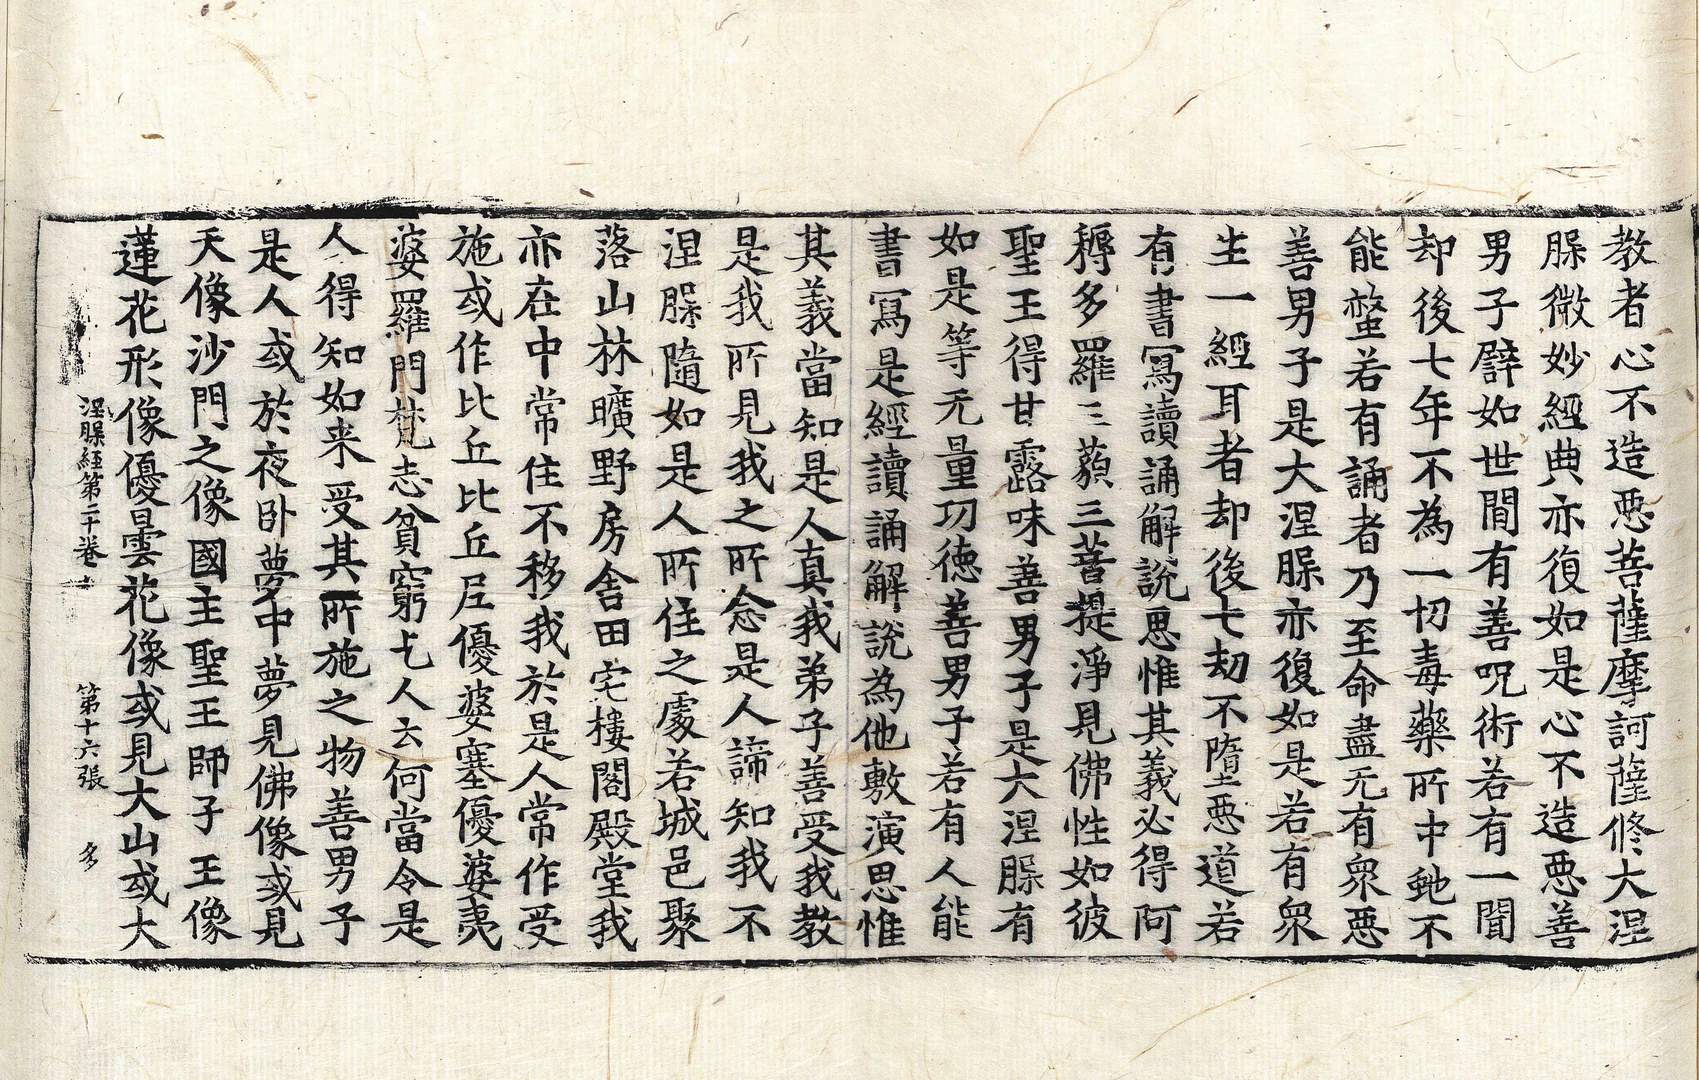 教者心不造惡菩薩摩訶薩修大涅
槃微妙經典亦復如是心不造惡善
男子譬如世閒有善呪術若有一聞
却後七年不為一切毒藥所中虵不
能螫若有誦者乃至命盡无有衆惡
善男子是大涅槃亦復如是若有衆
生一經耳者却後七劫不墮惡道若
有書寫讀誦解說思惟其義必得阿
耨多羅三藐三菩提淨見佛性如彼
聖王得甘露味善男子是大涅槃有
如是等无量功德善男子若有人能
書寫是經讀誦解說為他敷演思惟
其義當知是人真我弟子善受我教
是我所見我之所念是人諦知我不
涅槃隨如是人所住之處若城邑聚
落山林曠野房舍田宅樓閣殿堂我
亦在中常住不移我於是人常作受
施或作比丘比丘尼優婆塞優婆夷
婆羅門梵志貧窮乞人云何當令是
人得知如来受其所施之物善男子
是人或於夜卧夢中夢見佛像或見
天像沙門之像國主聖王師子王像
蓮花形像優曇花像或見大山或大
涅槃經第二十卷 第十六張 多